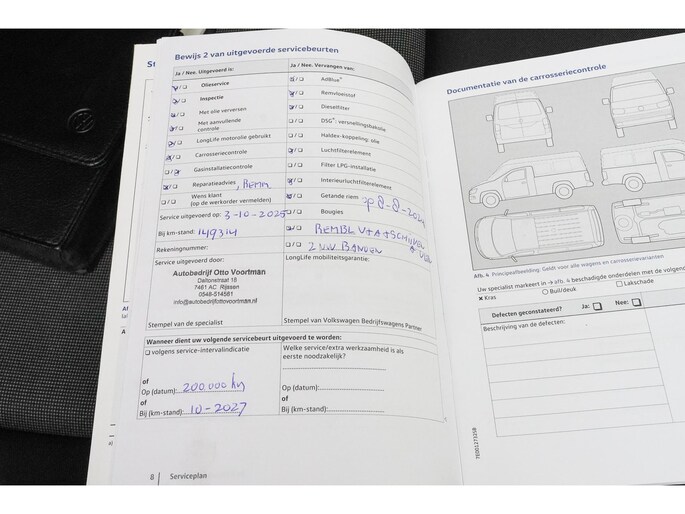 Bewijs 2 van uitgevoerde servicebeurten
Ja / Nee. Uitgevoerd is:
Olieservice
Inspectie
Met olie verversen
Met aanvullende
controle
LongLife motorolie gebruikt
Carrosseriecontrole
Gasinstallatiecontrole
Reparatieadvies, Remm.
Wens klant
(op de werkorder vermelden)
Service uitgevoerd op: 3-10-2025
Bij km-stand: 149314
Rekeningnummer:
Service uitgevoerd door:
Autobedrijf Otto Voortman
Daltonstraat 18
7461 AC Rijssen
0548-514561
info@autobedrijfottovoortman.nl
Stempel van de specialist
Ja / Nee. Vervangen van:
AdBlue®
Remvloeistof
Dieselfilter
DSG®: versnellingsbakolie
Haldex-koppeling: olie
Luchtfilterelement
Filter LPG-installatie
Interieurluchtfilterelement
Getande riem
Bougies
2 NW BANDEN
LongLife mobiliteitsgarantie:
Stempel van Volkswagen Bedrijfswagens Partner
Wanneer dient uw volgende servicebeurt uitgevoerd te worden:
volgens service-intervalindicatie
of
Op (datum): 200.000 km
of
Bij (km-stand): 10-2027
Welke service/extra werkzaamheid is als
eerste noodzakelijk?
of
Op (datum):
of
Bij (km-stand):
8 Serviceplan
Documentatie van de carrosseriecontrole
Afb. 4 Principeafbeelding: Geldt voor alle wagens en carrosserievarianten
Uw specialist markeert in → afb. 4 beschadigde onderdelen met de volgende
Kras
Buil/deuk
Lakschade
Defecten geconstateerd? Ja: Nee:
Beschrijving van de defecten: